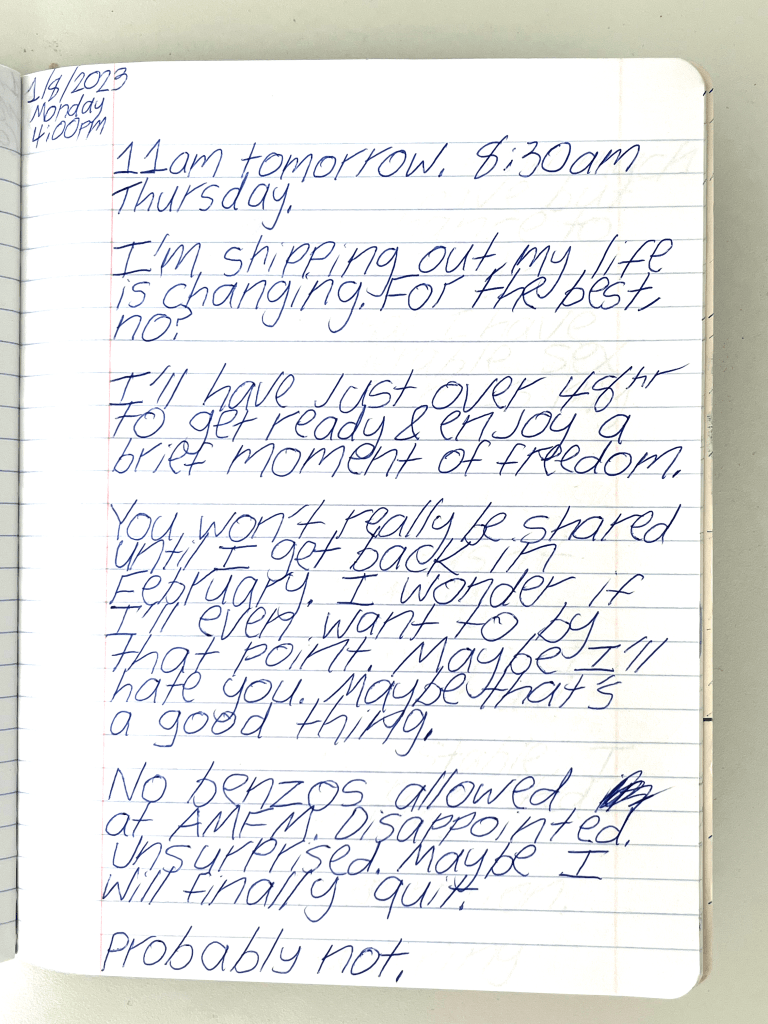 1/8/2023
Monday
4:00pm
11am tomorrow. 8:30am
Thursday.
I'm shipping out, my life
is changing. For the best,
no?
I'll have just over 48hr
to get ready & enjoy a
brief moment of freedom.
You won't really be shared
until I get back in
February. I wonder if
I'll even want to by
that point. Maybe I'll
hate you. Maybe that's
a good thing.
No benzos allowed
at AMFM. Disappointed.
Unsurprised. Maybe I
will finally quit.
Probably not.